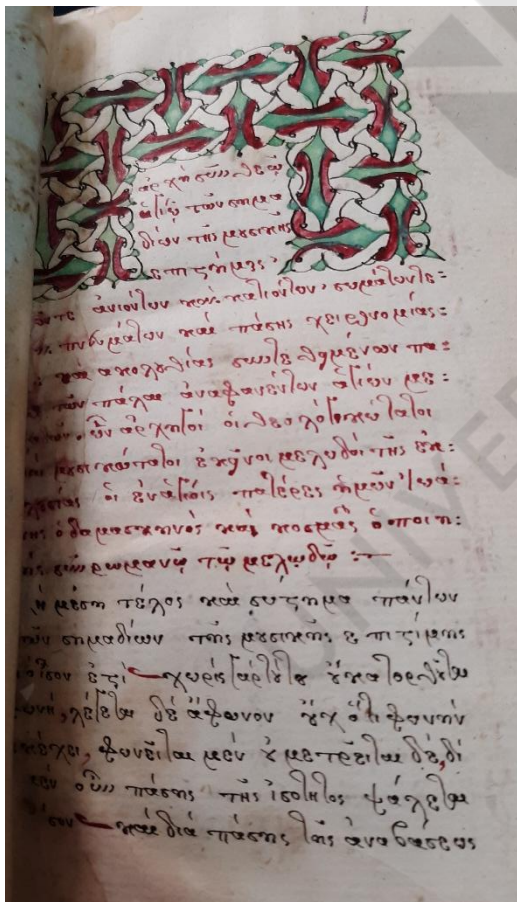 ἀρχὴ σὺν θεῷ
ἁγίῳ τῶν σημα
δίων τῆς μουσικῆς
ἐπιστήμης,
ἀνιόντων καὶ κατιόντων, σωμάτων τε:
πνευμάτων καὶ πάσης χειρονομίας:
καὶ ἀκολουθίας συντεθημένων πα:
τῶν πάλαι ἀναφανέντων ἁγίων με:
ὧν ἀρχηγοὶ οἱ
μουσικώτατοι ἐκεῖνοι μελωδοὶ τῆς ἐκ:
οἱ ἐν ἁγίοις πατέρες ἡμῶν Ἰωά:
ὁ δαμασκηνὸς καὶ κοσμᾶς ὁ ποιη:
σὺν ρωμανῷ τῷ μελωδῷ :—
μέση τέλος καὶ σύστημα πάντων
τῶν σημαδίων τῆς μουσικῆς ἐπιστήμης
ἴσον ἐστὶ χωρὶς γὰρ τούτου οὐ κατορθοῦται
φωνή, λέγεται δὲ ἄφωνον οὐχ ὅτι φωνὴν
φωνεῖται μὲν οὐ μετρεῖται δέ, δι
μὲν οὖν πάσης τῆς ἰσότητος ψάλλεται
ἴσον καὶ διὰ πάσης τῆς ἀναβάσεως
UNIVER